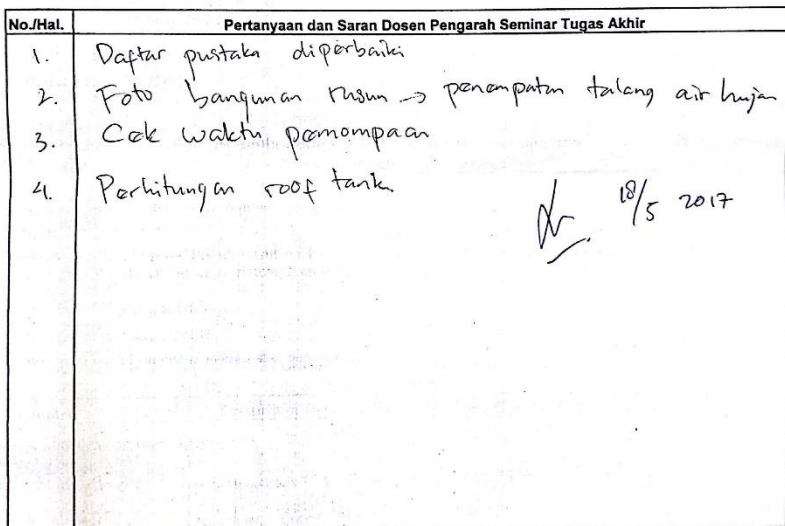 No./Hal. Pertanyaan dan Saran Dosen Pengarah Seminar Tugas Akhir
1. Daftar pustaka diperbaiki
2. Foto bangunan rusun → penempatan talang air hujan
3. Cek waktu pemompaan
4. Perhitungan roof tank
18/5 2017